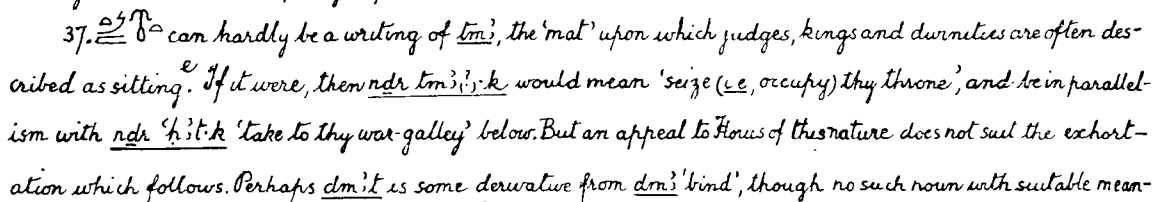 37. can hardly be a writing of tmꜣ, the 'mat' upon which judges, kings and divinities are often des-
cribed as sitting.e If it were, then ndr tmꜣ;ꜣ;·k would mean 'seize (i.e, occupy) thy throne', and be in parallel-
ism with ndr ꜥḥꜣt·k 'take to thy war-galley' below. But an appeal to Horus of this nature does not suit the exhort-
ation which follows. Perhaps dmꜣt is some derivative from dmꜣ 'bind', though no such noun with suitable mean-